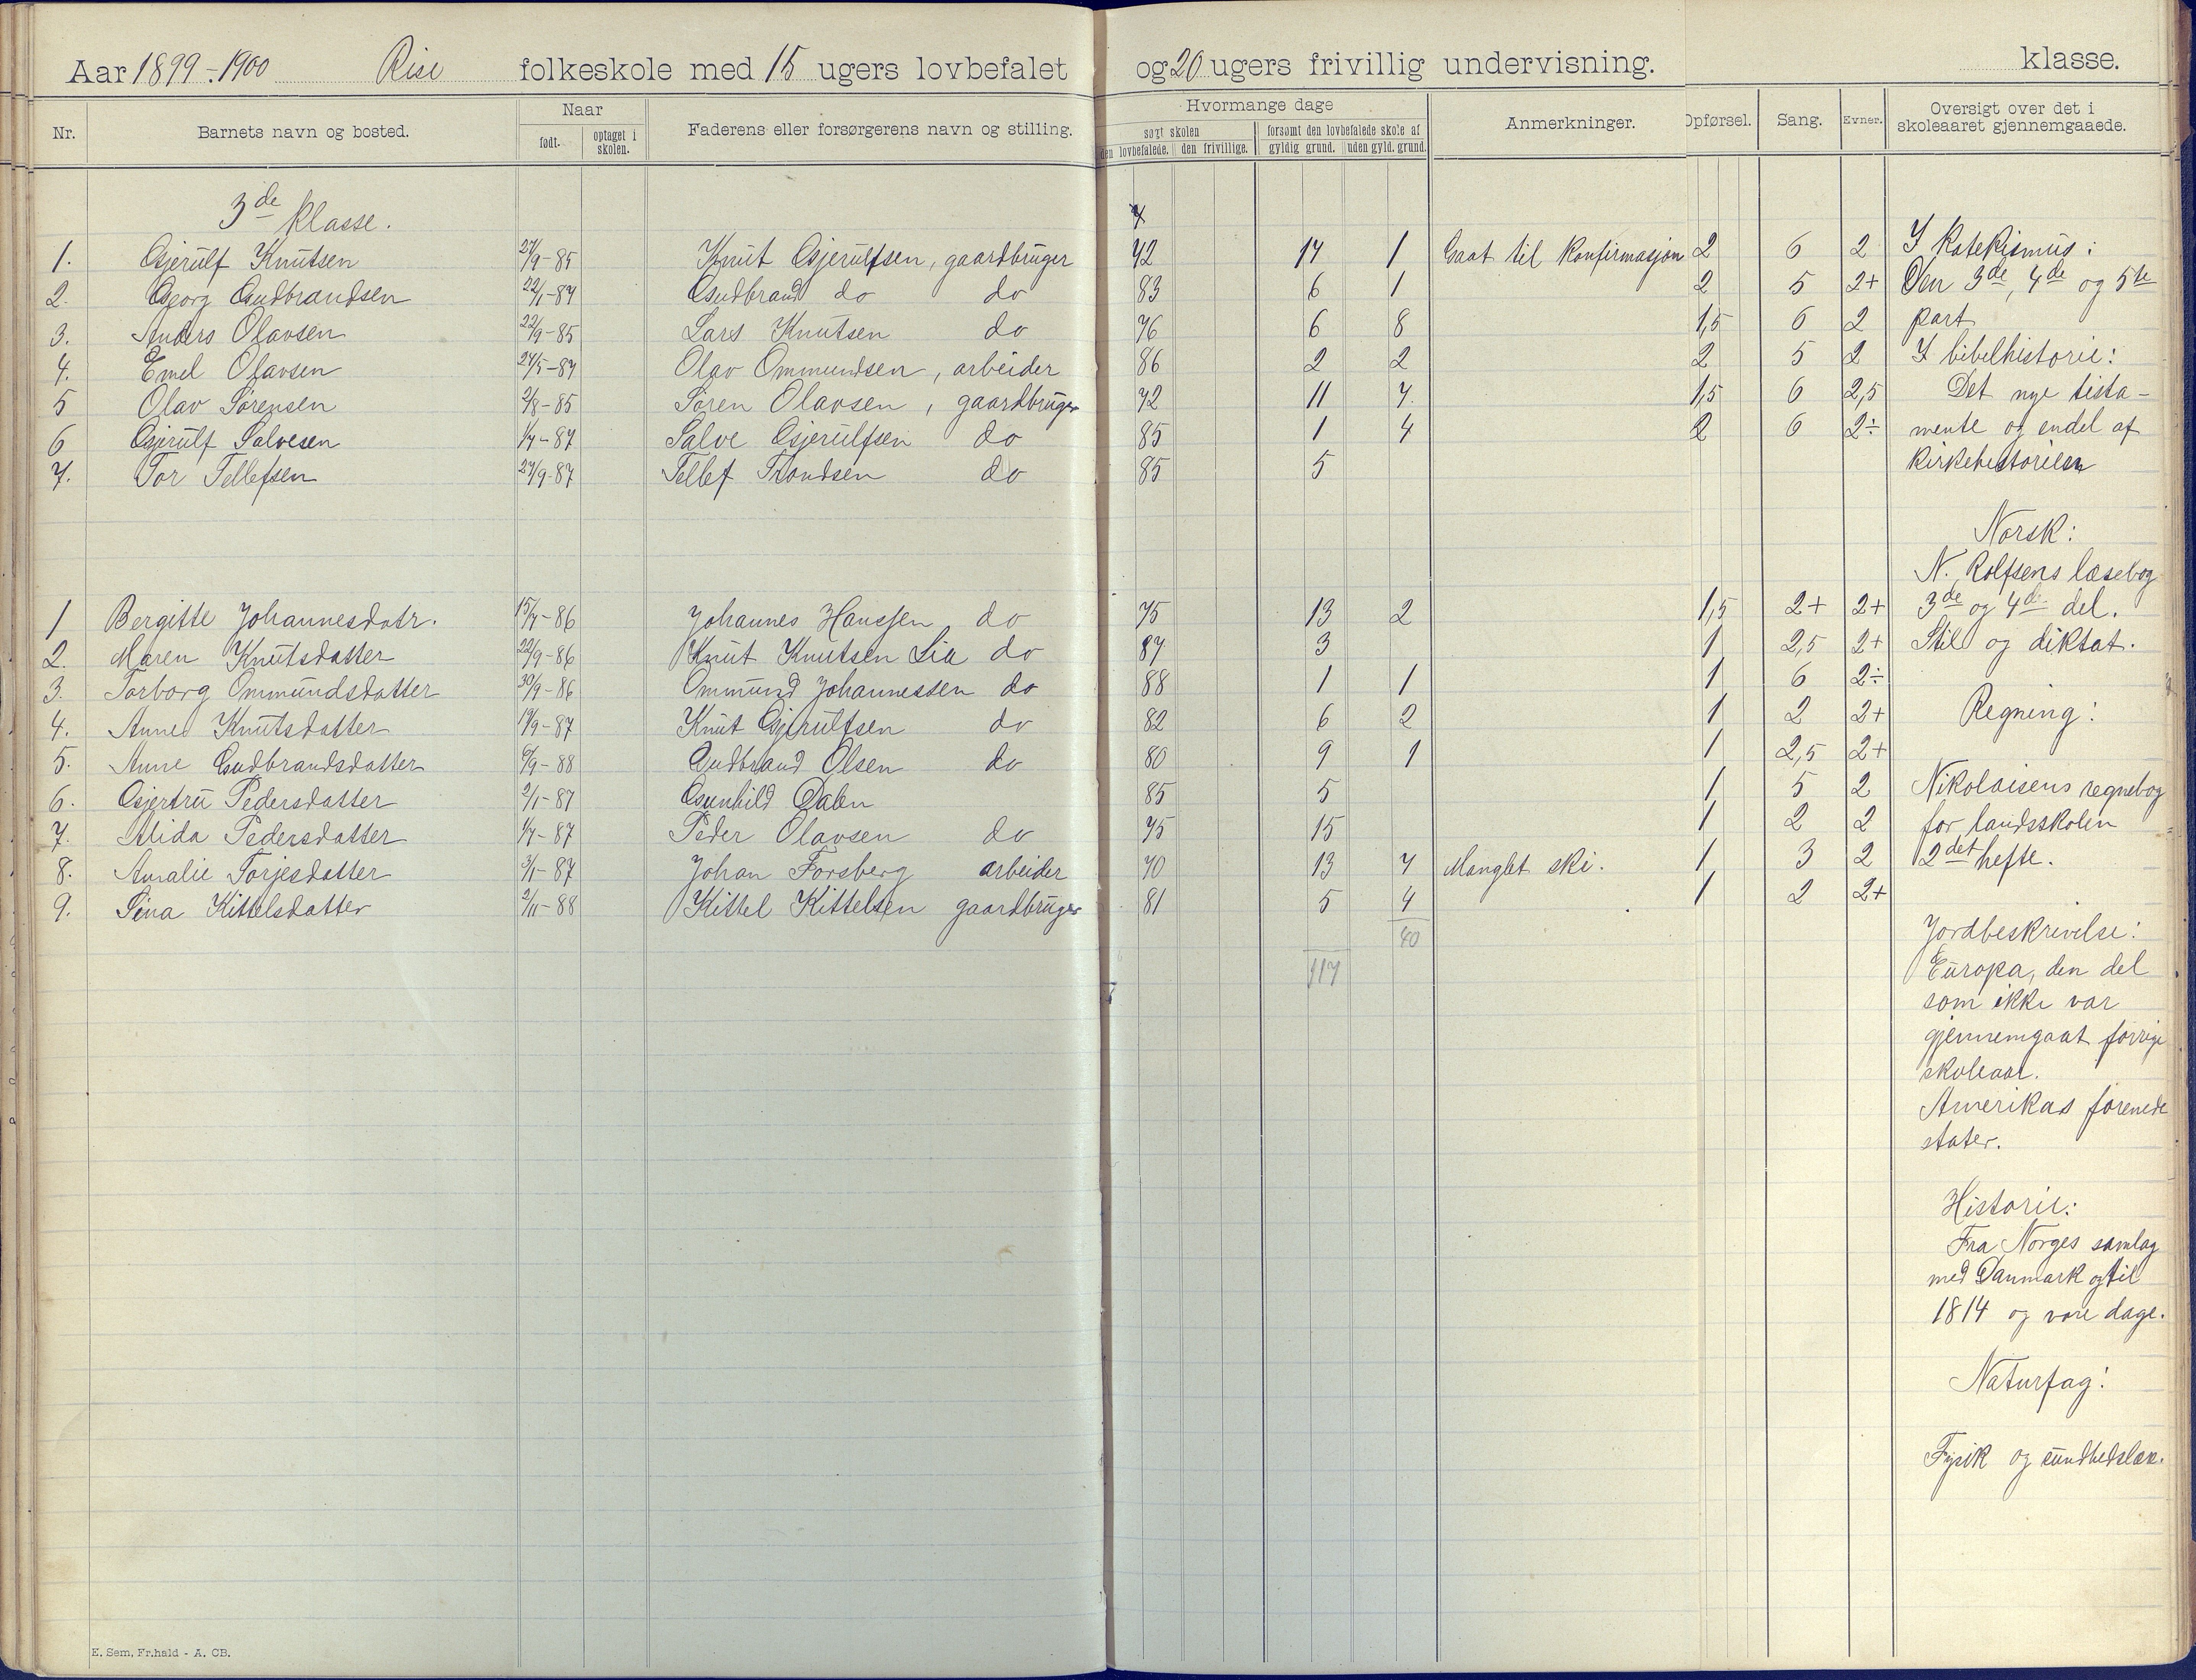 Aar 1899-1900 Rise folkeskole med 15 ugers lovbefalet og 20 ugers frivillig undervisning. klasse.
Nr. Barnets navn og bosted. Naar født. optaget i skolen. Faderens eller forsørgerens navn og stilling. Hvormange dage søgt skolen den lovbefalede. den frivillige. forsømt den lovbefalede skole af gyldig grund. uden gyld. grund. Anmerkninger. Opførsel. Sang. Evner. Oversigt over det i skoleaaret gjennemgaaede.
3de klasse.
1. Gjerulf Knutsen 27/9-85 Knut Gjerulfsen, gaardbruger 72 17 1 Gaat til Konfirmasjon 2 6 2
2. Georg Gudbrandsen 22/1-87 Gudbrand do do 83 6 1 2 5 2+
3. Anders Olavsen 22/9-85 Lars Knutsen do 76 6 8 1,5 6 2
4. Emel Olavsen 27/5-87 Olav Ommundsen, arbeider 86 2 2 2 5 2
5 Olav Sørensen 2/8-85 Søren Olavsen, gaardbruger 72 11 7 1,5 6 2,5
6 Gjerulf Salvesen 1/7-87 Salve Gjerulfsen do 85 1 4 2 6 2÷
7. Tor Tellefsen 27/9-87 Tellef Trondsen do 85 5
1 Bergitte Johannesdatr. 15/7-86 Johannes Hanssen do 75 13 2 1,5 2+ 2+
2. Maren Knutsdatter 22/9-86 Knut Knutsen Lia do 87 3 1 2,5 2+
3. Torborg Ommundsdatter 30/9-86 Ommund Johannessen do 88 1 1 1 6 2÷
4. Anne Knutsdatter 19/9-87 Knut Gjerulfsen do 82 6 2 1 2 2+
5. Anne Gudbrandsdatter 6/9-88 Gudbrand Olsen do 80 9 1 1 2,5 2+
6. Gjertru Pedersdatter 2/1-87 Gunhild Dalen 85 5 1 5 2
7. Alida Pedersdatter 1/7-87 Peder Olavsen do 75 15 1 2 2
8. Amalie Torjesdatter 3/1-87 Johan Forsberg arbeider 70 13 7 Manglet ski. 1 3 2
9. Sina Kittelsdatter 2/11-88 Kittel Kittelsen gaardbruger 81 5 4 1 2 2+
40
117
I Katekismus:
Den 3de, 4de og 5te
part
I bibelhistorie:
Det nye testa-
mente og endel af
kirkehistorien
Norsk:
N. Rolfsens læsebog
3de og 4de del.
Stil og diktat.
Regning:
Nikolaisens regnebog
for landsskolen
2det hefte.
Jordbeskrivelse:
Europa, den del
som ikke var
gjennemgaat forrige
skoleaar.
Amerikas forenede
stater.
Historie:
Fra Norges samlag
med Danmark og til
1814 og vore dage.
Naturfag:
Fysik og sundhedslære.
E. Sem, Fr.hald - A. CB.